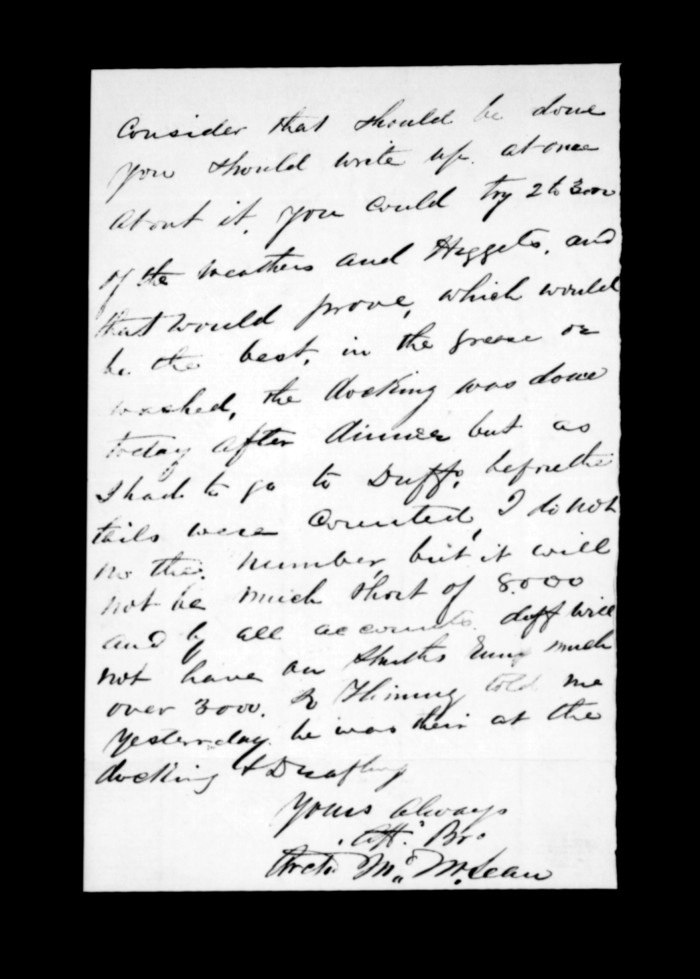 Consider that should be done
you should write up. at once
about it. you could try 2 to 3000
of the weathers and Heggets. and
that would prove, which would
be the best, in the grease or
washed, the docking was done
today after dinner but as
I had to go to Duffs before the
tails were counted, I do not
no the. number, but it will
not be much short of 8.000
and by all accounts duff will
not have on Smiths Rung much
over 3000. R Thining told me
yesterday he was their at the
docking & Drafting
Yours always
Afft. Bro
Archd Mc. McLean